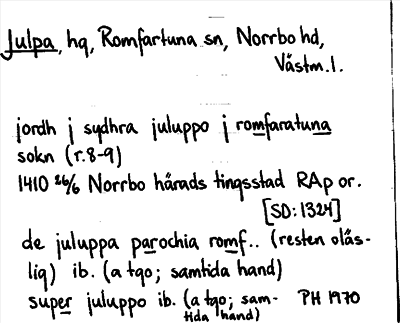 Julpa, hg, Romfartuna sn, Norrbo hd,
Västm.l.
jordh j sydhra juluppo j romfaratuna
sokn (r.8-9)
1410 26/6 Norrbo härads tingsstad RAp or.
[SD:1324]
de juluppa parochia romf.. (resten oläs-
lig) ib. (a tgo; samtida hand)
super juluppo ib. (a tgo; sam-
tida hand) PH 1970